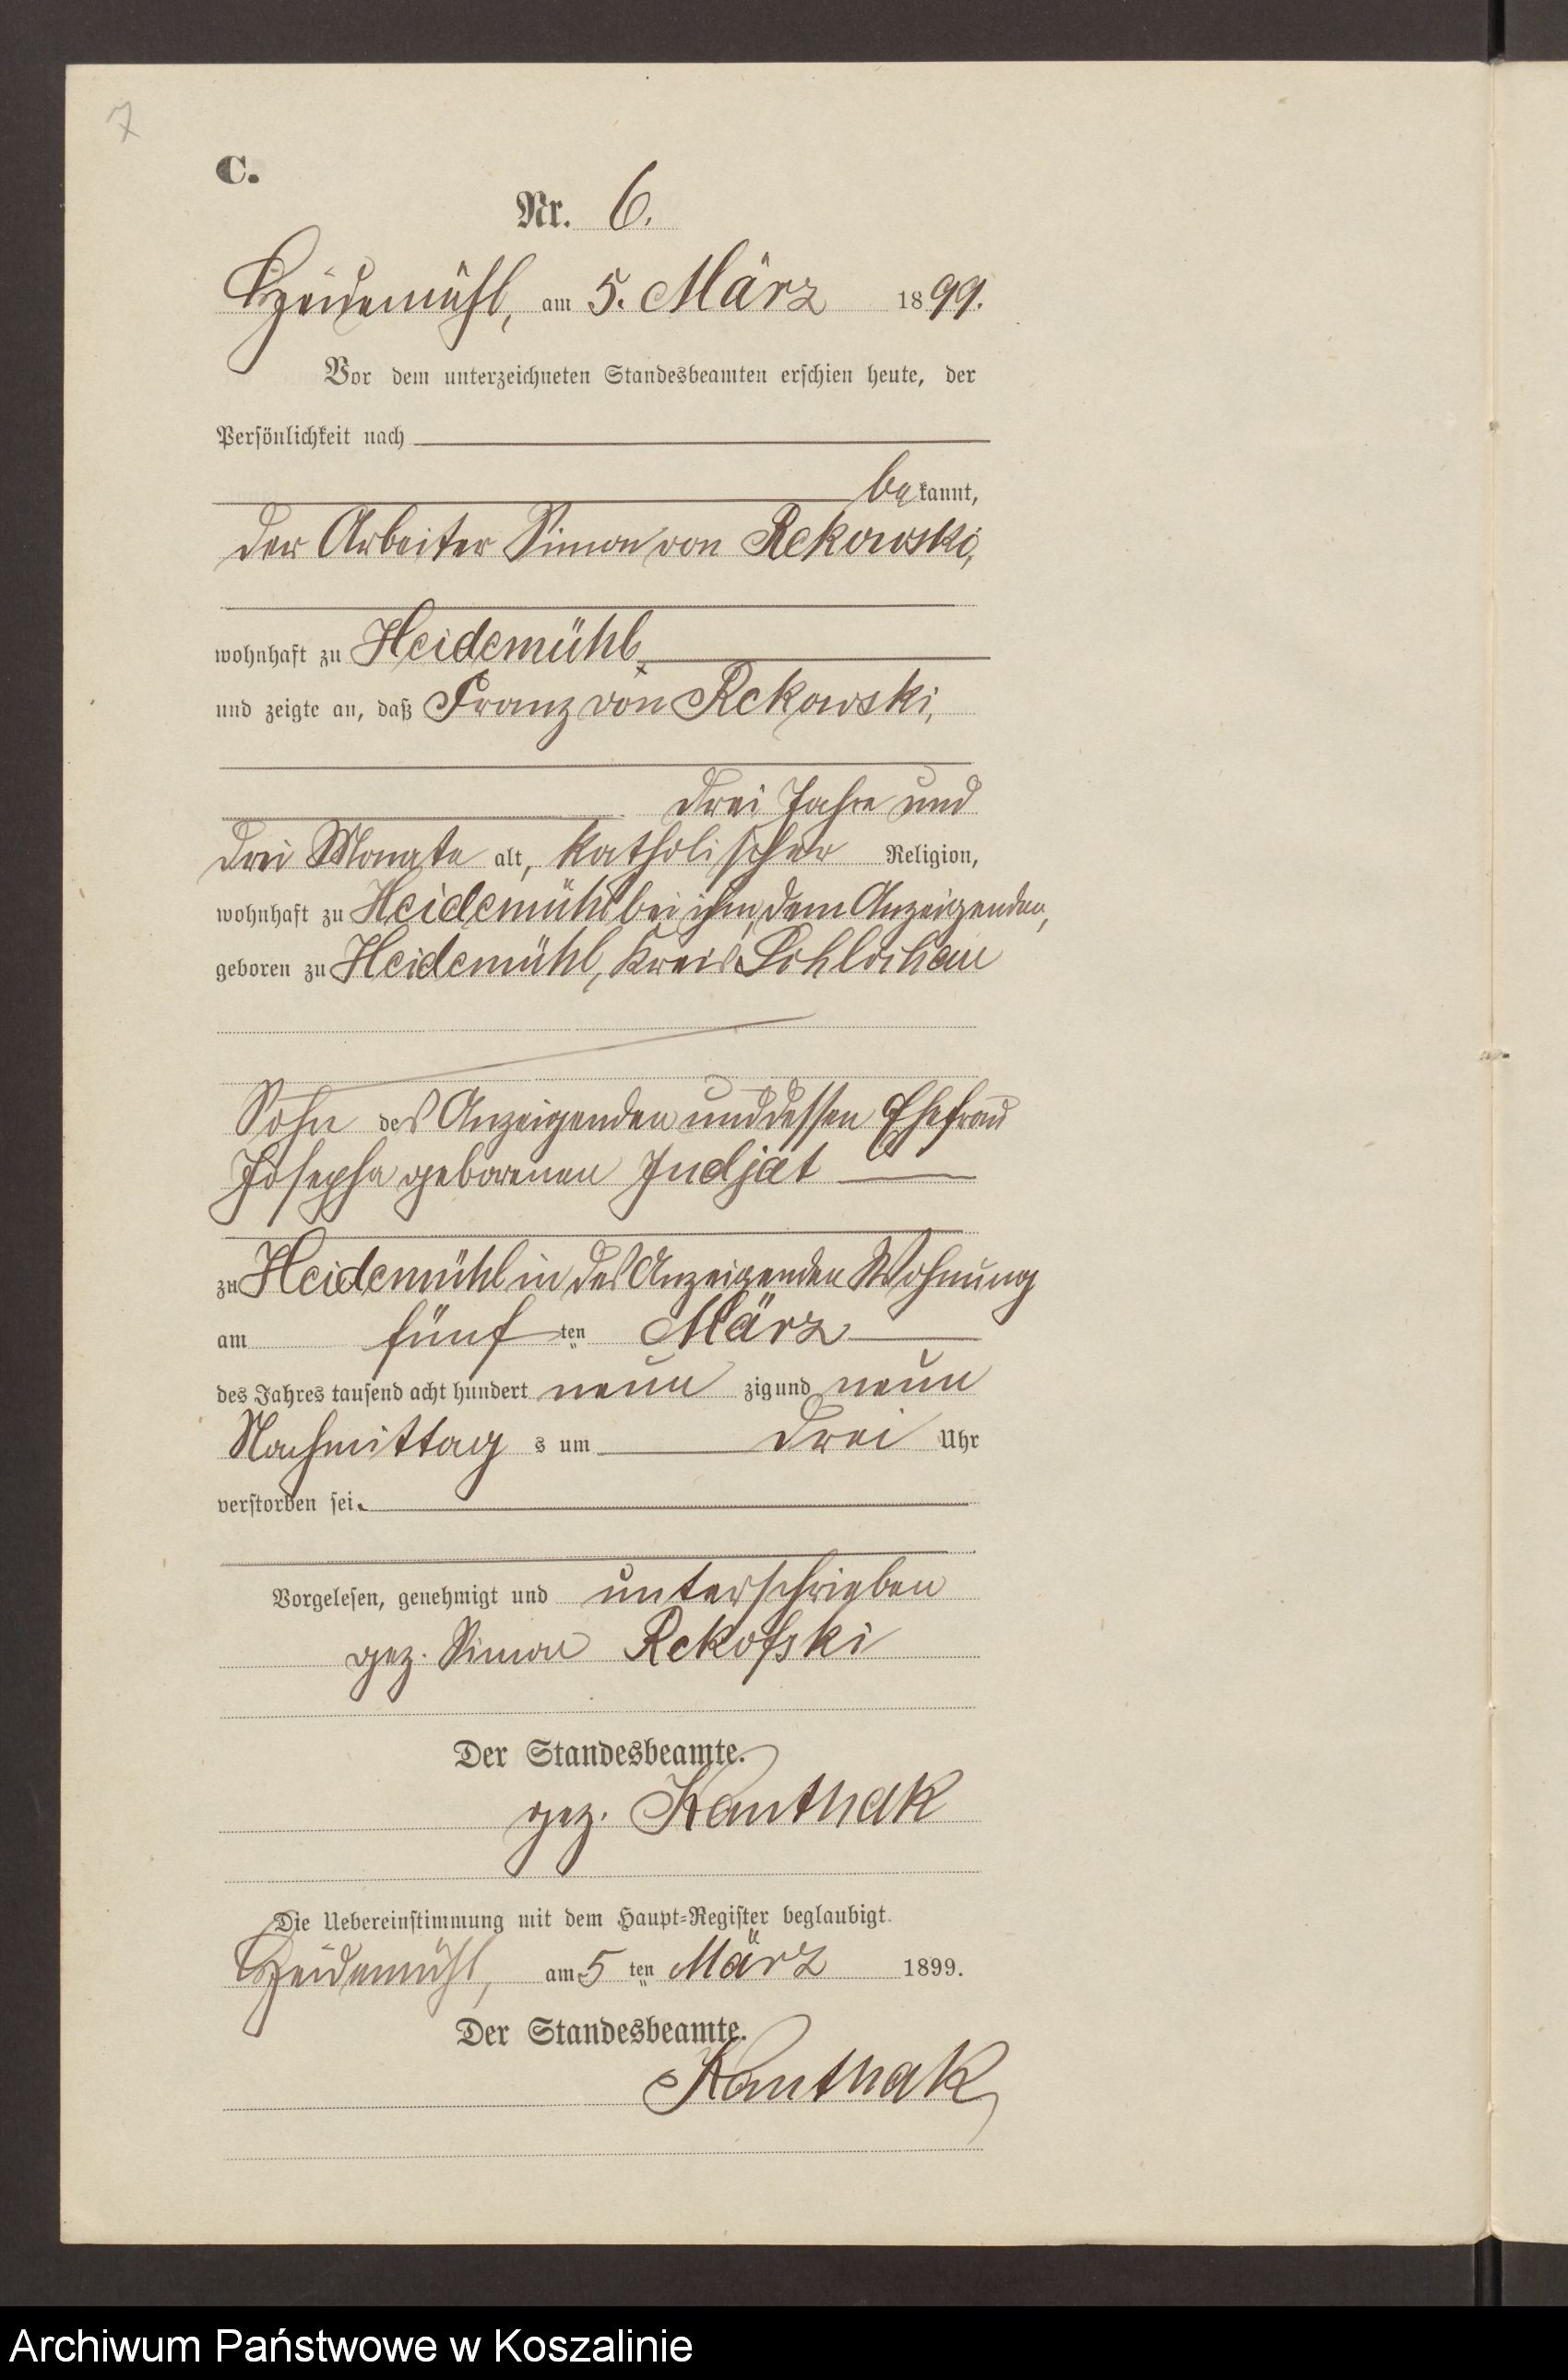 7
C.
Nr. 6.
Heidemühl, am 5. März 1899.
Vor dem unterzeichneten Standesbeamten erschien heute, der
Persönlichkeit nach
bekannt,
der Arbeiter Simon von Rekowski,
wohnhaft zu Heidemühl
und zeigte an, daß Franz von Rekowski,
drei Jahre und
drei Monate alt, katholischer Religion,
wohnhaft zu Heidemühl bei ihm, dem Anzeigenden,
geboren zu Heidemühl, Kreis Schlochau
Sohn des Anzeigenden und dessen Ehefrau
Josepha geborenen Indjat
zu Heidemühl in des Anzeigenden Wohnung
am fünften März
des Jahres tausend acht hundert neunzig und neun
Nachmittags um drei Uhr
verstorben sei.
Vorgelesen, genehmigt und unterschrieben
gez. Simon Rekofski
Der Standesbeamte.
gez. Kanthak
Die Uebereinstimmung mit dem Haupt-Register beglaubigt.
Heidemühl, am 5ten März 1899.
Der Standesbeamte.
Kanthak
Archiwum Państwowe w Koszalinie